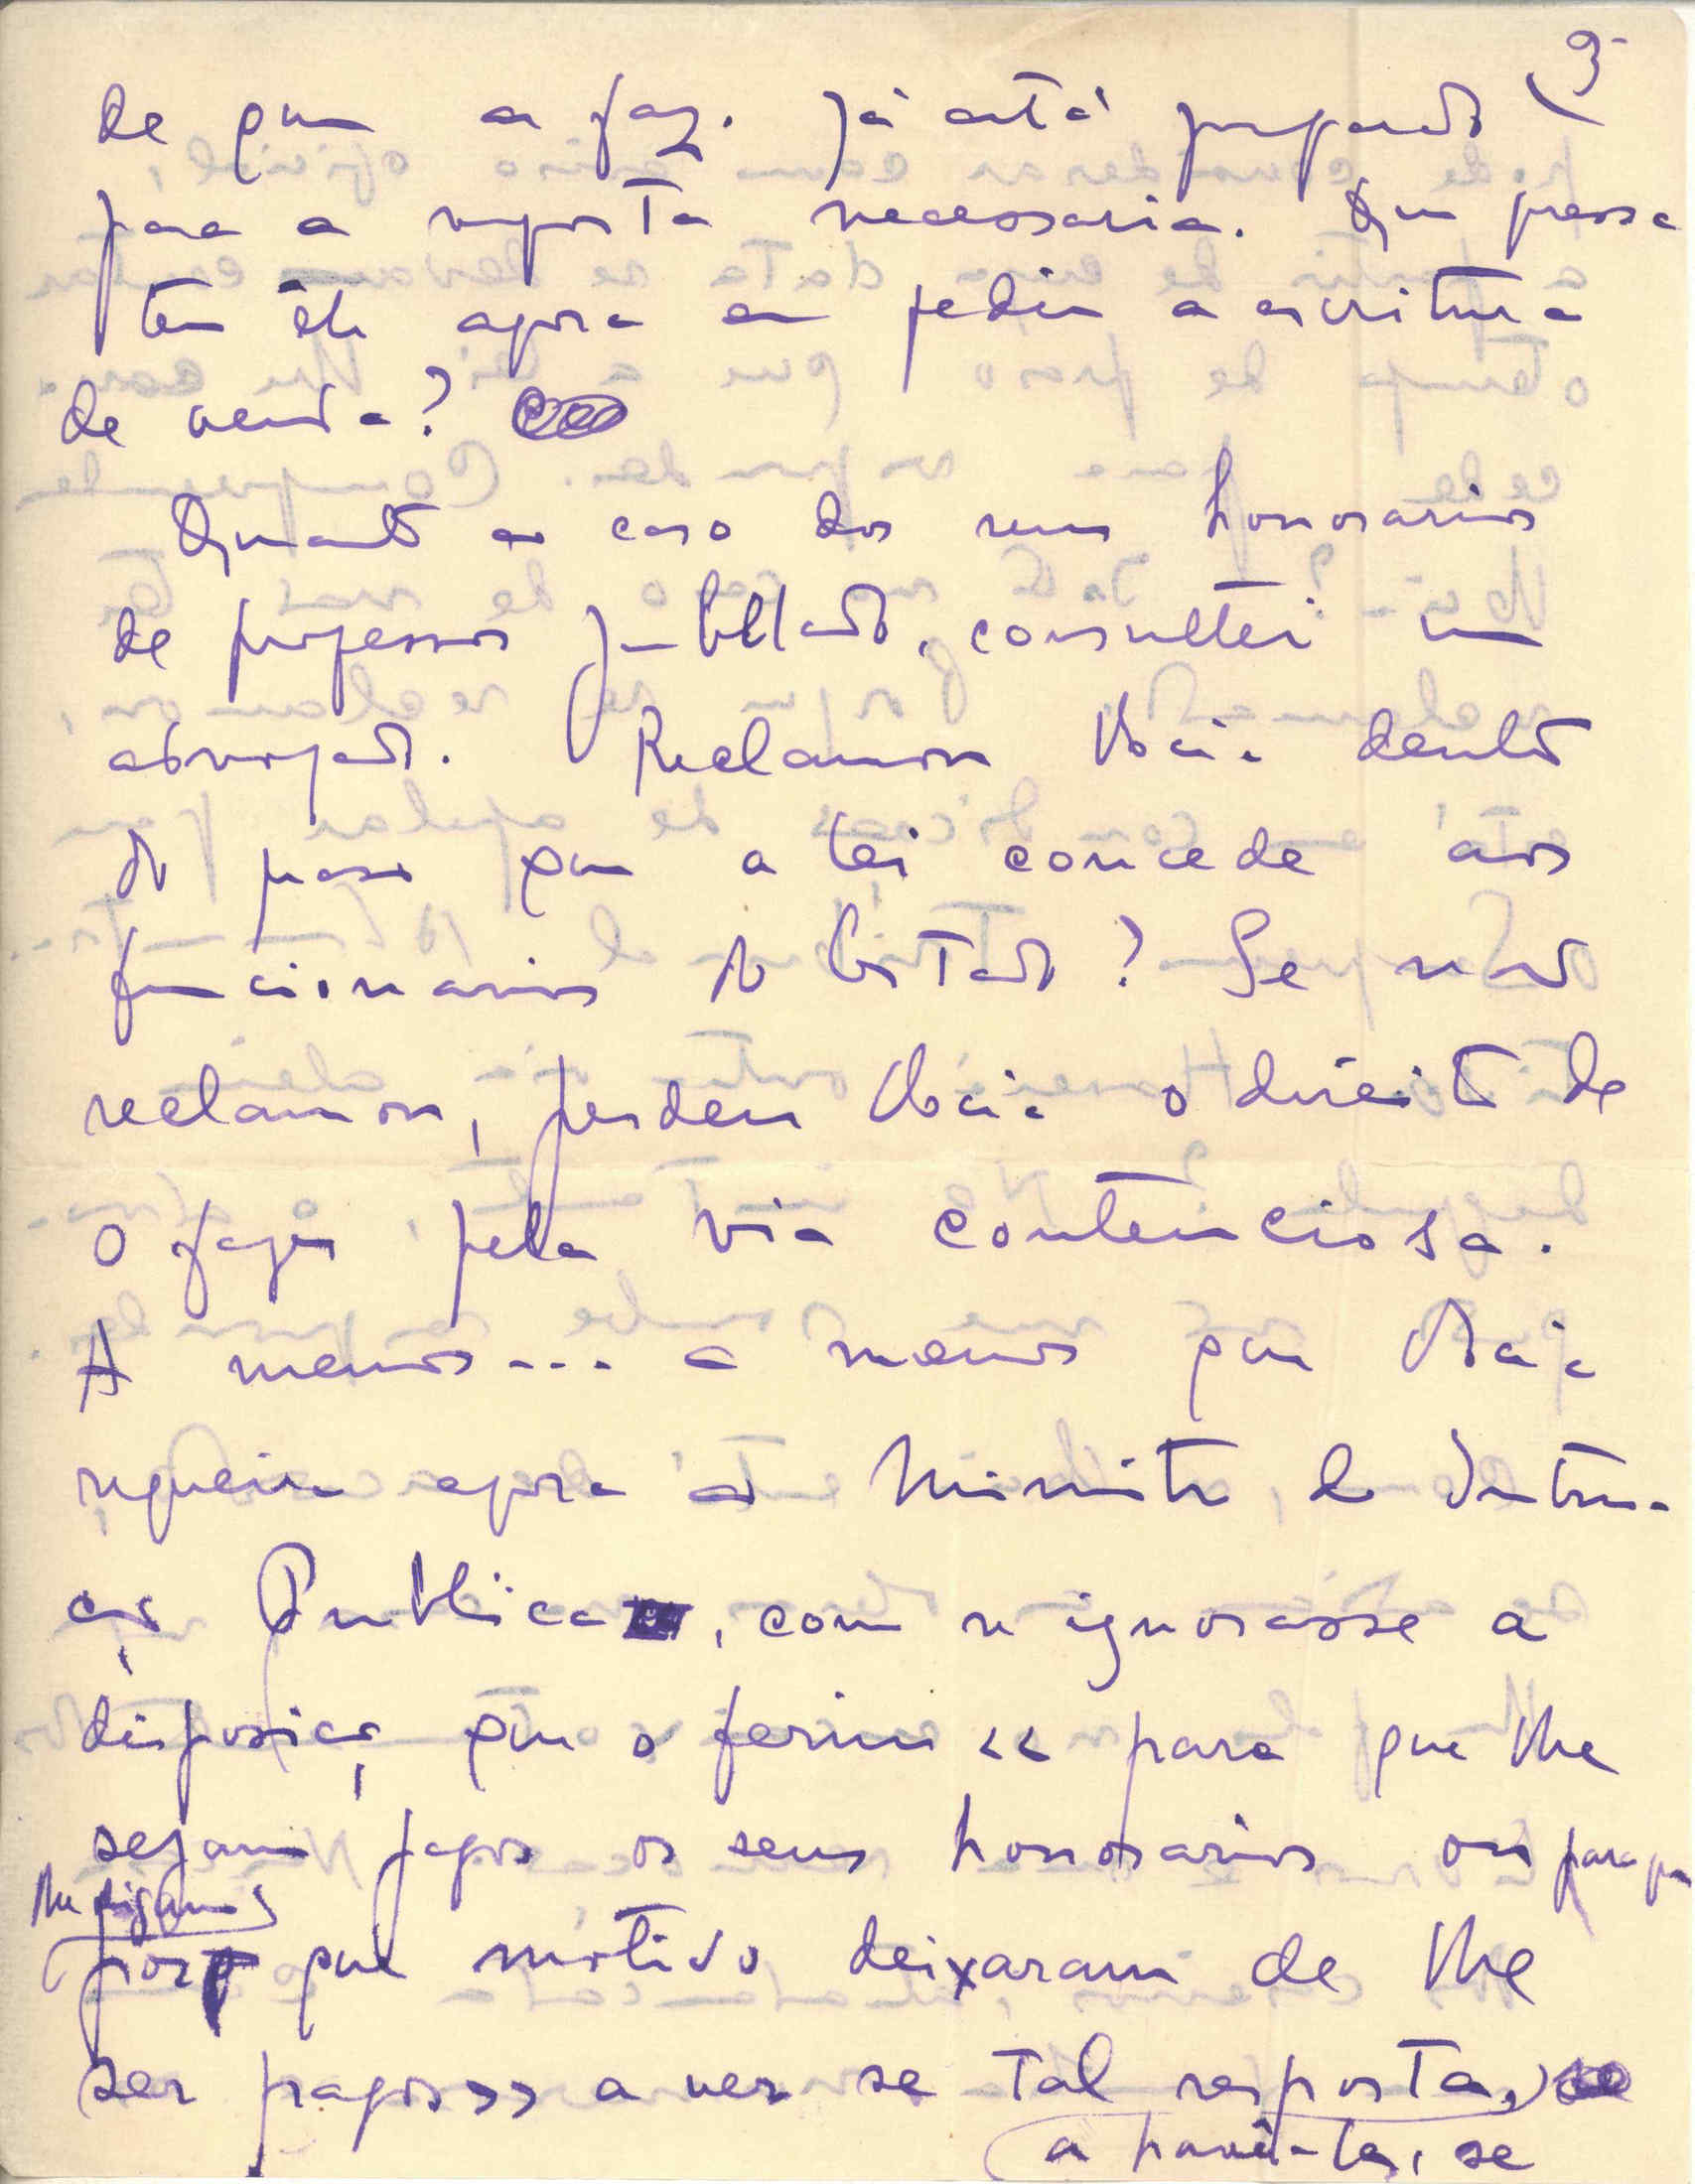 9
de que a faz. Já está preparado
para a resposta necessaria. Que pressa
tem êle agora em pedir a escritura
de venda?
Quanto ao caso dos seus honorarios
de professor jubilado, consultei um
advogado. Reclamou Você dentro
do praso que a lei concede aos
funcionarios do Estado? Se não
reclamou, perdeu Você o direito de
o fazer pela via contenciosa.
A menos... a menos que Você
requeira agora ao Ministro da Instru-
ção Publica, como se ignorasse a
disposição que o feriu << para que lhe
sejam pagos os seus honorarios ou para que
lhe digam
por que motivo deixaram de lhe
ser pagos >> a ver se tal resposta,
a havê-la, se